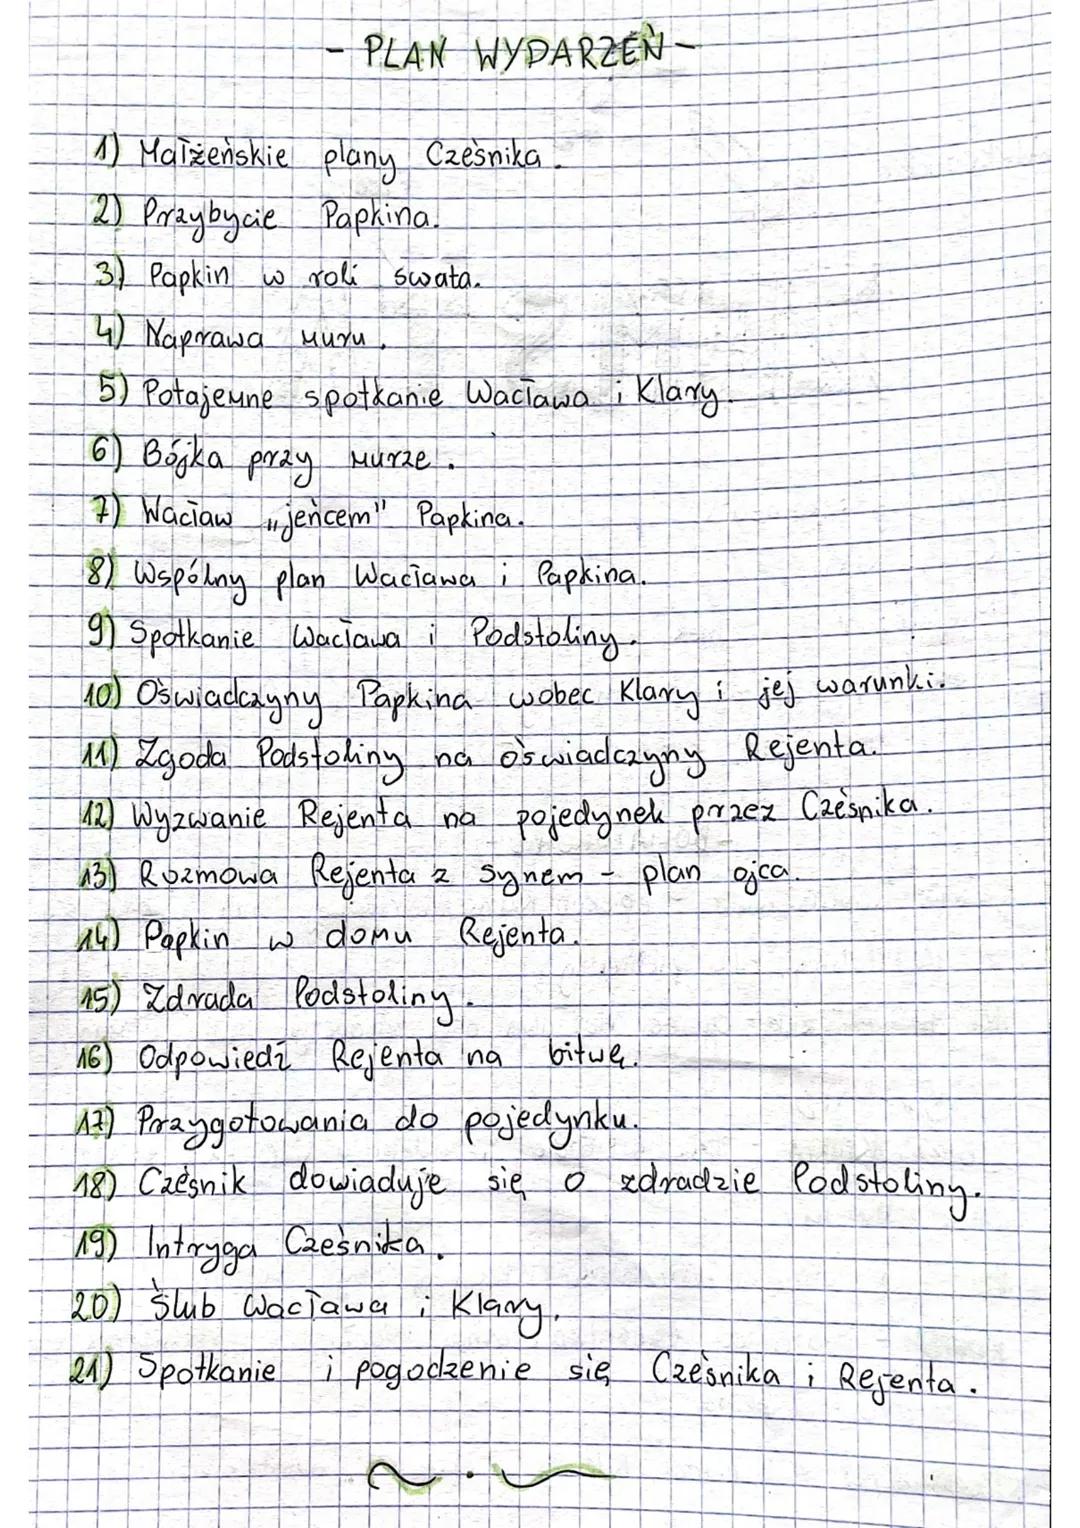 - PLAN WYDARZEŃ -
1) Małżeńskie plany Cześnika.
2) Przybycie Papkina.
3) Papkin w roli swata.
4) Naprawa muru.
5) Potajemne spotkanie Wacława i Klary.
6) Bójka przy murze.
7) Wacław „jeńcem" Papkina.
8) Wspólny plan Wacława i Papkina.
9) Spotkanie Wacława i Podstoliny.
10) Oświadczyny Papkina wobec Klary i jej warunki.
11) Zgoda Podstoliny na oświadczyny Rejenta.
12) Wyzwanie Rejenta na pojedynek przez Cześnika.
13) Rozmowa Rejenta z synem - plan ojca.
14) Papkin w domu Rejenta.
15) Zdrada Podstoliny.
16) Odpowiedź Rejenta na bitwę.
17) Przygotowania do pojedynku.
18) Cześnik dowiaduje się o zdradzie Podstoliny.
19) Intryga Cześnika.
20) Ślub Wacława i Klary.
21) Spotkanie i pogodzenie się Cześnika i Rejenta.